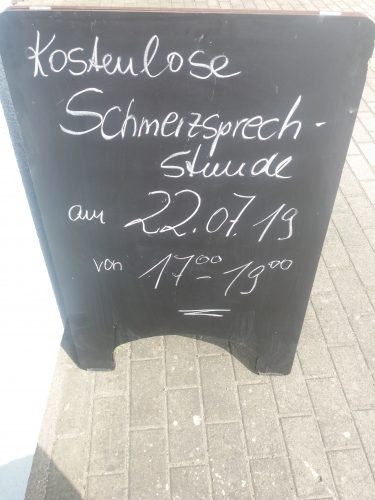 Kostenlose
Schmerzsprech-
stunde
am 22.07.19
von 17⁰⁰-19⁰⁰